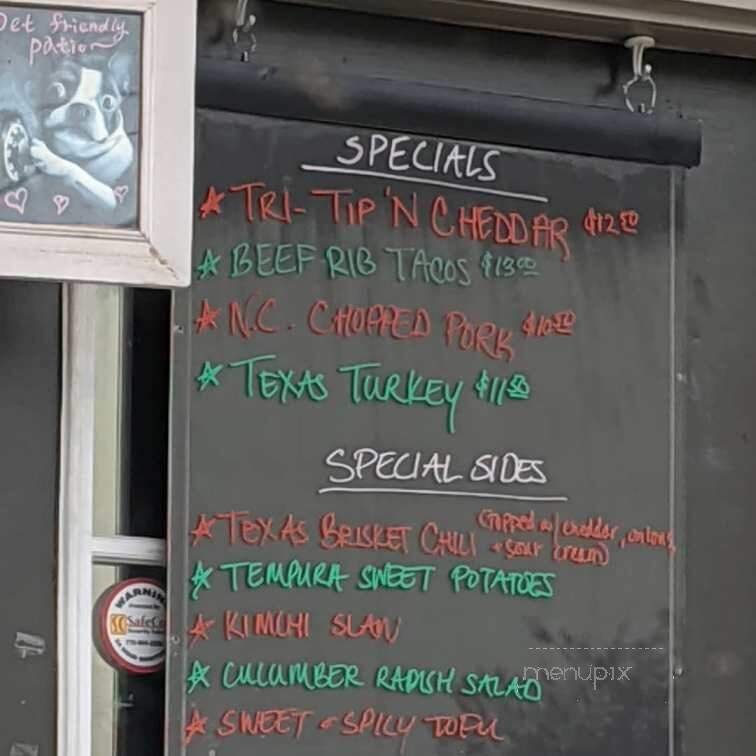 Pet friendly
patio
SPECIALS
☆ TRI-TIP 'N CHEDDAR $12.50
☆ BEEF RIB TACOS $13.00
☆ N.C. CHOPPED PORK $10.50
☆ TEXAS TURKEY $11.50
SPECIAL SIDES
☆ TEXAS BRISKET CHILI (topped w/ cheddar, onions,
+ sour cream)
☆ TEMPURA SWEET POTATOES
☆ KIMCHI SLAW
☆ CUCUMBER RADISH SALAD
☆ SWEET & SPICY TOFU
WARNING
SafeCo
menupix